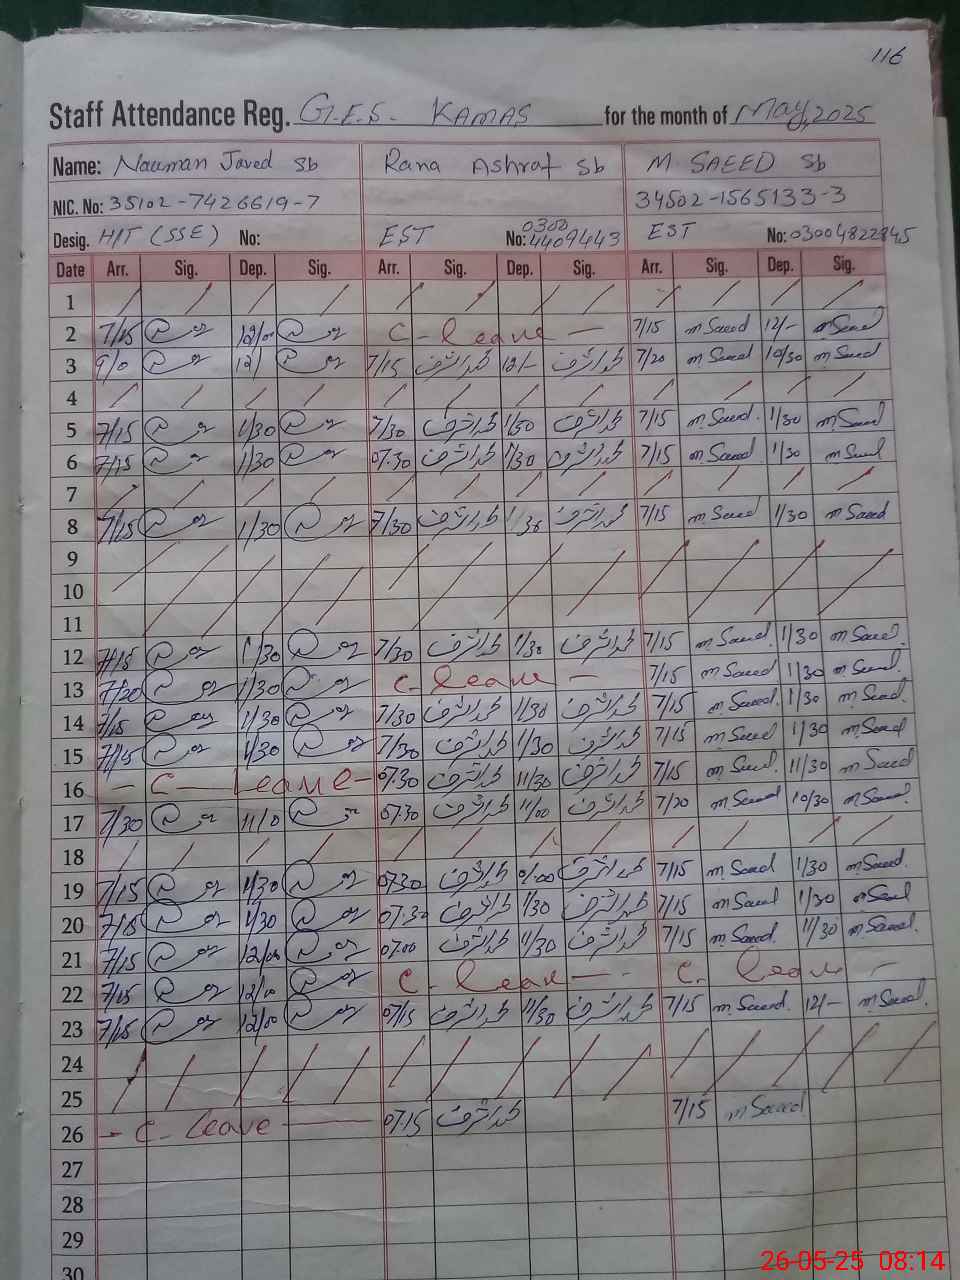 116
Staff Attendance Reg. G.E.S. KAMAS for the month of May, 2025
Name: Nauman Javed Sb Rana Ashraf Sb M. SAEED Sb
NIC. No: 35102-7426619-7 34502-1565133-3
Desig. H/T (SSE) No: EST No: 0300 4409443 EST No:
Date Arr. Sig. Dep. Sig. Arr. Sig. Dep. Sig. Arr. Sig. Dep. Sig.
1
2 7/15 12/00 C-leave 7/15 m Saeed 12/- m Saeed
3 9/0 12/ 7/15 محمد اشرف 12/- محمد اشرف 7/20 m Saeed 10/30 m Saeed
4
5 7/15 1/30 7/30 محمد اشرف محمد اشرف 7/15 m. Saeed. 1/30 m Saeed
6 7/15 1/30 07.30 محمد اشرف 1/30 محمد اشرف 7/15 m. Saeed 1/30 m Saeed
7
8 7/15 1/30 7/30 محمد اشرف 1/30 محمد اشرف 7/15 m Saeed 1/30 m Saeed
9
10
11
12 7/15 1/30 7/30 محمد اشرف 1/30 محمد اشرف 7/15 m Saeed. 1/30 m Saeed.
13 7/20 1/30 C-leave 7/15 m Saeed 1/30 m Saeed.
14 7/15 1/30 7/30 محمد اشرف 1/30 محمد اشرف 7/15 m Saeed. 1/30 m Saeed.
15 7/15 1/30 7/30 محمد اشرف 1/30 محمد اشرف 7/15 m Saeed 1/30 m Saeed
16 - C - Leave - 07.30 محمد اشرف 11/30 محمد اشرف 7/15 m Saeed. 11/30 m Saeed
17 7/30 11/0 07.30 محمد اشرف 11/00 محمد اشرف 7/20 m Saeed 10/30 m Saeed.
18
19 7/15 1/30 0730 محمد اشرف محمد اشرف 7/15 m Saeed 1/30 m Saeed.
20 7/15 1/30 07.30 محمد اشرف 1/30 محمد اشرف 7/15 m Saeed 1/30 m Saeed
21 7/15 12/00 07.00 محمد اشرف 11/30 محمد اشرف 7/15 m Saeed. 11/30 m Saeed.
22 7/15 12/00 C- leave - C. leave -
23 7/15 12/00 07/15 محمد اشرف 11/30 محمد اشرف 7/15 m. Saeed. 12/- m Saeed.
24
25
26 - C - leave - 07.15 محمد اشرف 7/15 m Saeed
27
28
29
30
26-05-25 08:14